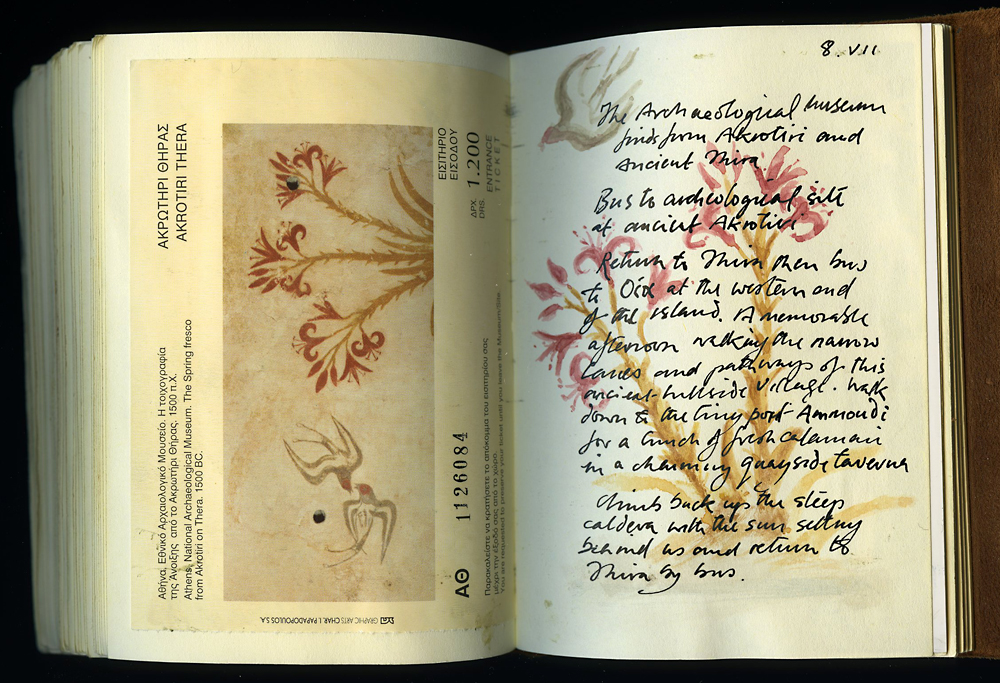 ΑΚΡΩΤΗΡΙ ΘΗΡΑΣ
AKROTIRI THERA
Αθήνα, Εθνικό Αρχαιολογικό Μουσείο. Η τοιχογραφία
της Άνοιξης από το Ακρωτήρι Θήρας. 1500 π.Χ.
Athens, National Archaeological Museum. The Spring fresco
from Akrotiri on Thera. 1500 BC.
GRAPHIC ARTS CHAR. I. PAPADOPOULOS S.A.
ΕΙΣΙΤΗΡΙΟ
ΕΙΣΟΔΟΥ
ΔΡΧ.
DRS.
1.200
ENTRANCE
TICKET
ΑΘ
1126084
Παρακαλείστε να κρατήσετε το απόκομμα του εισιτηρίου σας
μέχρι την έξοδό σας από το χώρο.
You are requested to preserve your ticket until you leave the Museum-Site.
8.VII
The Archaeological Museum
finds from Akrotiri and
Ancient Thira.
Bus to archeological site
at ancient Akrotiri
Return to Thira then bus
to Οία at the western end
of the island. A memorable
afternoon walking the narrow
lanes and pathways of this
ancient hillside village. Walk
down to the tiny port Ammoudi
for a lunch of fresh calamari
in a charming quayside taverna
Climb back up the steep
caldera with the sun setting
behind us and return to
Thira by bus.